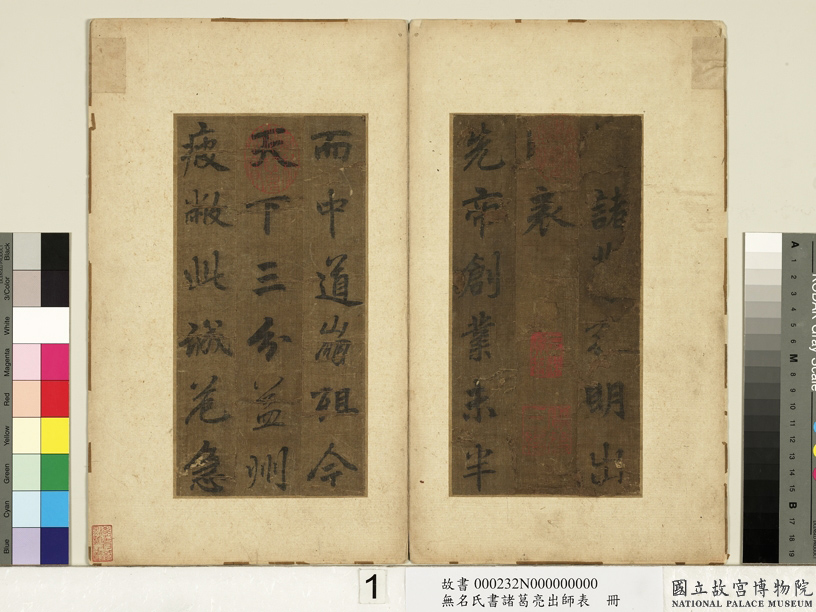 諸 明出
表
先帝創業未半
而中道崩殂今
天下三分益州
疲敝此誠危急
1
故書 000232N000000000
無名氏書諸葛亮出師表 冊
國立故宮博物院
NATIONAL PALACE MUSEUM
Black
3/Color
White
Magenta
Red
Yellow
Green
Cyan
Blue
A
1
2
3
4
5
6
M
8
9
10
11
12
13
14
15
B
17
18
19